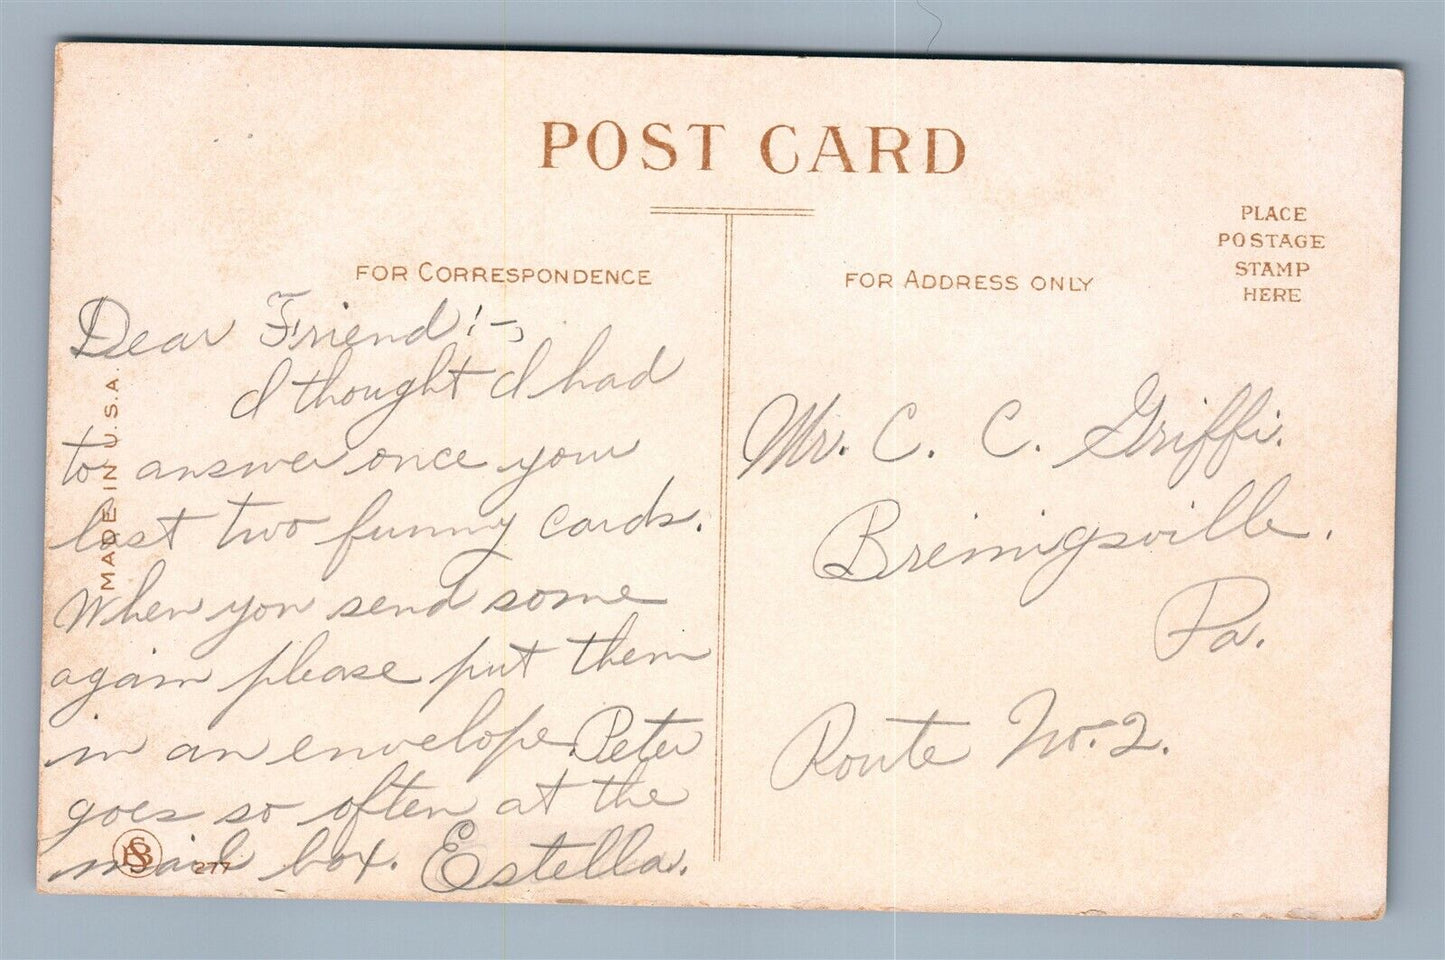 POST CARD
PLACE
POSTAGE
STAMP
HERE
FOR CORRESPONDENCE
FOR ADDRESS ONLY
Dear Friend:-,
I thought I had
to answer once your
last two funny cards.
When you send some
again please put them
in an envelope. Peter
goes so often at the
mail box. Estella.
Mr. C. C. Griffi.
Breinigsville.
Pa.
Route No. 2.
MADE IN U.S.A.
BS
277